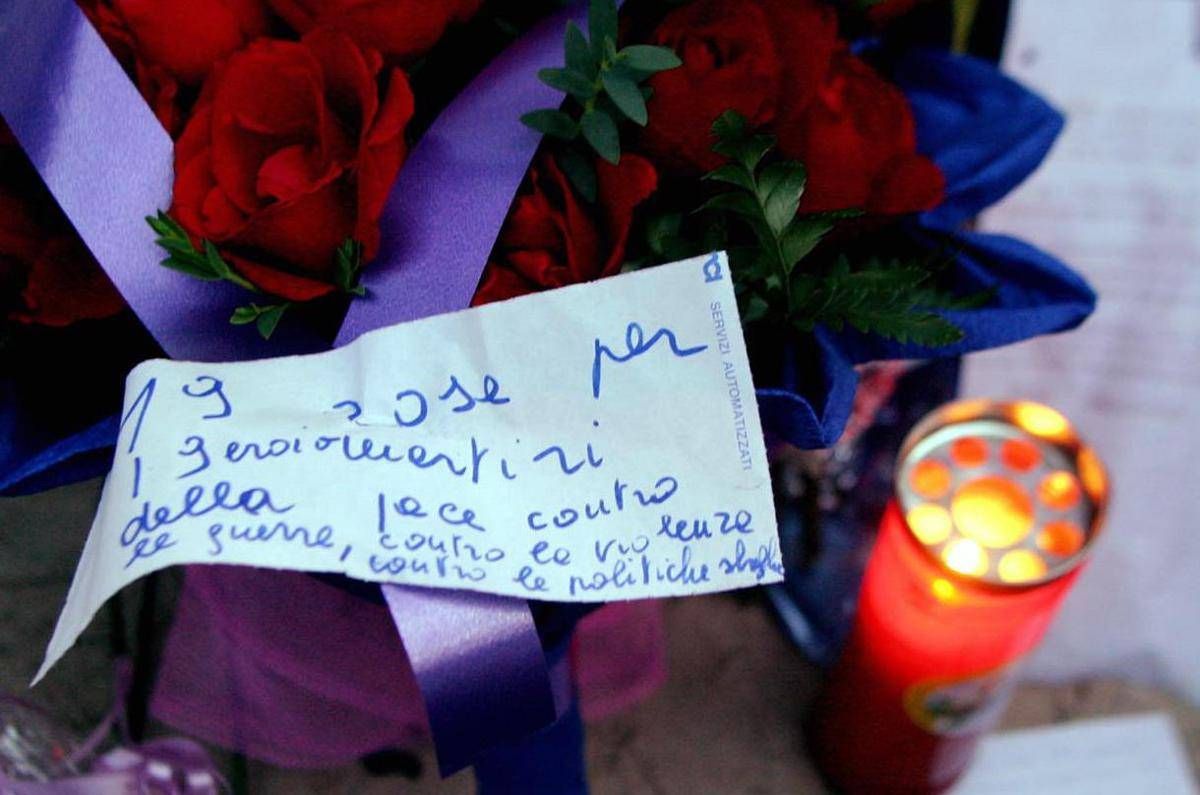 19 rose per
i 9 eroi o martiri
della pace contro
le guerre, contro la violenza
contro le politiche sbagliate
SERVIZI AUTOMATIZZATI